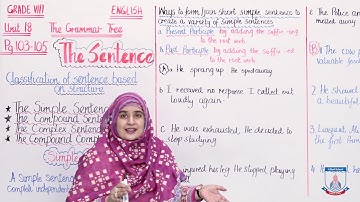 GRADE VIII
ENGLISH
Unit 18
The Grammar Tree
Pg 103-105
The Sentence
Classification of sentence based
on structure
★ The Simple Sentenc
★ The Compound Sente
★ The Complex Sentenc
★ The Compound Compl
Simple
A Simple Sentenc
complex independent
Ways to form/join short simple sentence to
create a variety of simple sentences
a Present Participle by adding the suffix -ing
to the root verb
b Past Participle by adding the suffix -ed
to the root verb
a He sprang up He sped away
b I received no response I called out
loudly again
c He was exhausted, He decided to
stop studying
injured his leg He stopped playing
The Police an
melted away
The cow p
valuable food
2 He showed
a beautiful
3
the first Hum
4